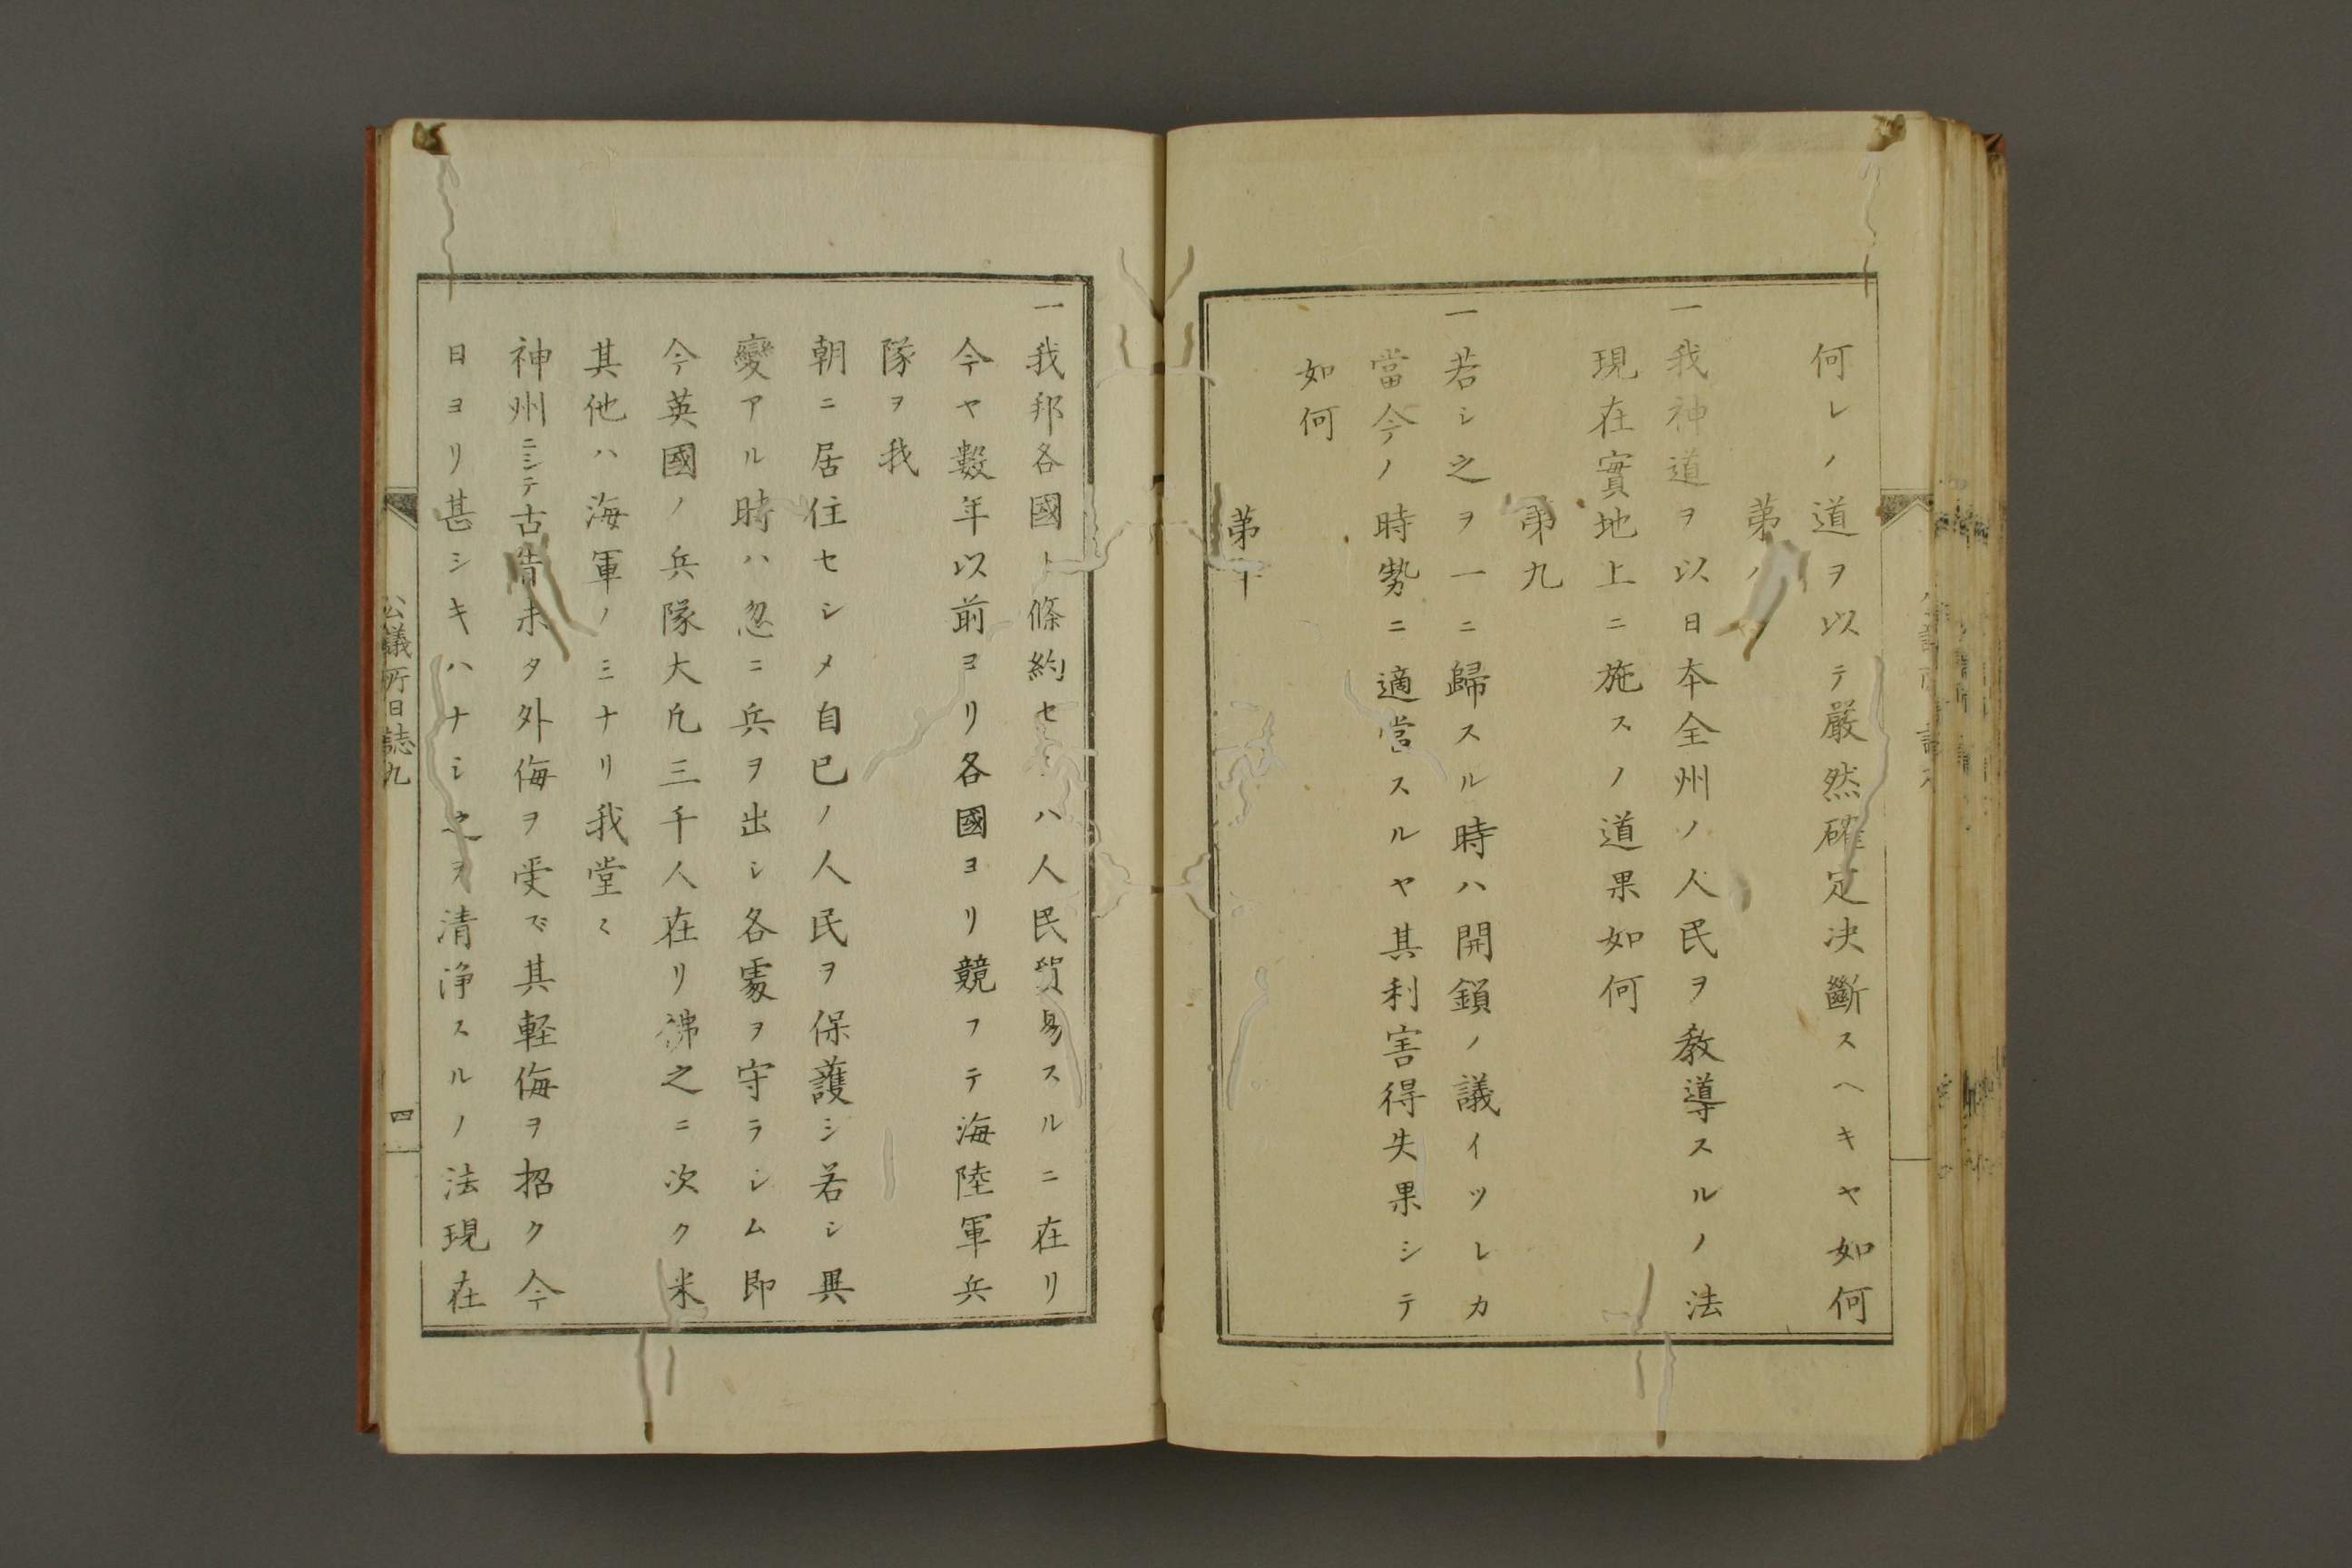 何レノ道ヲ以テ嚴然確定決斷スヘキヤ如何
第八
一我神道ヲ以日本全州ノ人民ヲ教導スルノ法
現在實地上ニ施スノ道果如何
第九
一若シ之ヲ一ニ歸スル時ハ開鎖ノ議イツレカ
當今ノ時勢ニ適當スルヤ其利害得失果シテ
如何
第十
一我邦各國ト條約セシハ人民貿易スルニ在リ
今ヤ數年以前ヨリ各國ヨリ競フテ海陸軍兵
隊ヲ我
朝ニ居住セシメ自己ノ人民ヲ保護シ若シ異
變アル時ハ忽ニ兵ヲ出シ各處ヲ守ラシム即
今英國ノ兵隊大凡三千人在リ彿之ニ次ク米
其他ハ海軍ノミナリ我堂々
神州ニシテ古昔未タ外侮ヲ受ズ其軽侮ヲ招ク今
日ヨリ甚シキハナシ之ヲ清浄スルノ法現在
公議所日誌九
四